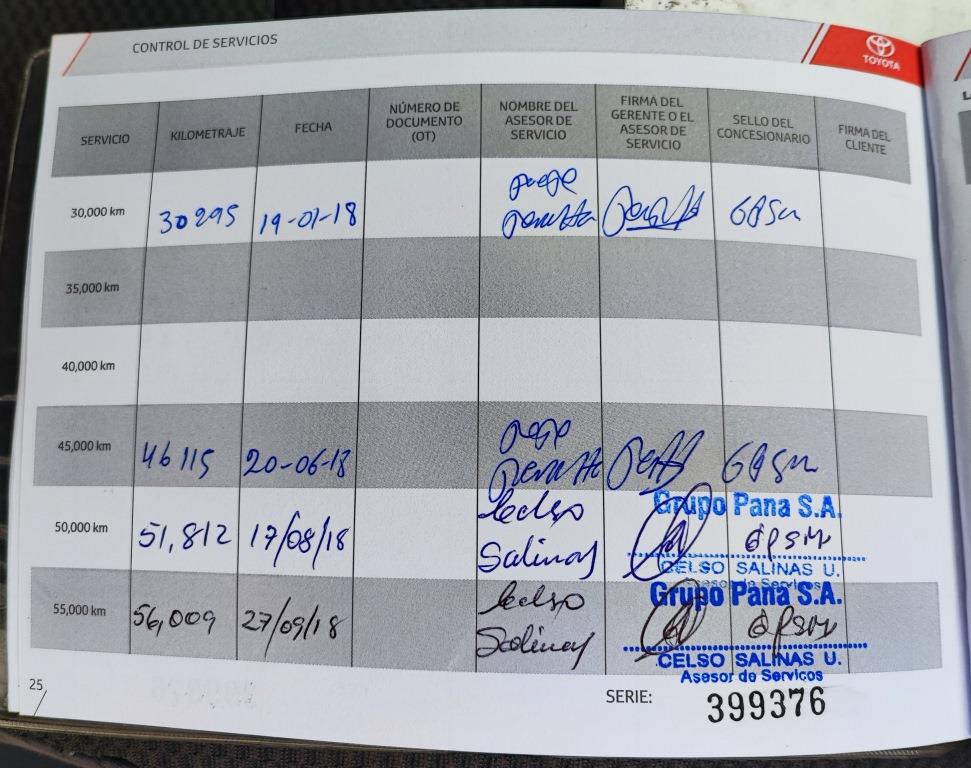 CONTROL DE SERVICIOS
TOYOTA
SERVICIO
KILOMETRAJE
FECHA
NÚMERO DE
DOCUMENTO
(OT)
NOMBRE DEL
ASESOR DE
SERVICIO
FIRMA DEL
GERENTE O EL
ASESOR DE
SERVICIO
SELLO DEL
CONCESIONARIO
FIRMA DEL
CLIENTE
30,000 km
30295
19-01-18
35,000 km
40,000 km
45,000 km
46115
20-06-18
50,000 km
51,812
17/08/18
Celso
Salinas
Grupo Pana S.A.
CELSO SALINAS U.
Asesor de Servicos
55,000 km
56,009
27/09/18
Celso
Salinas
Grupo Pana S.A.
CELSO SALINAS U.
Asesor de Servicos
25
SERIE:
399376